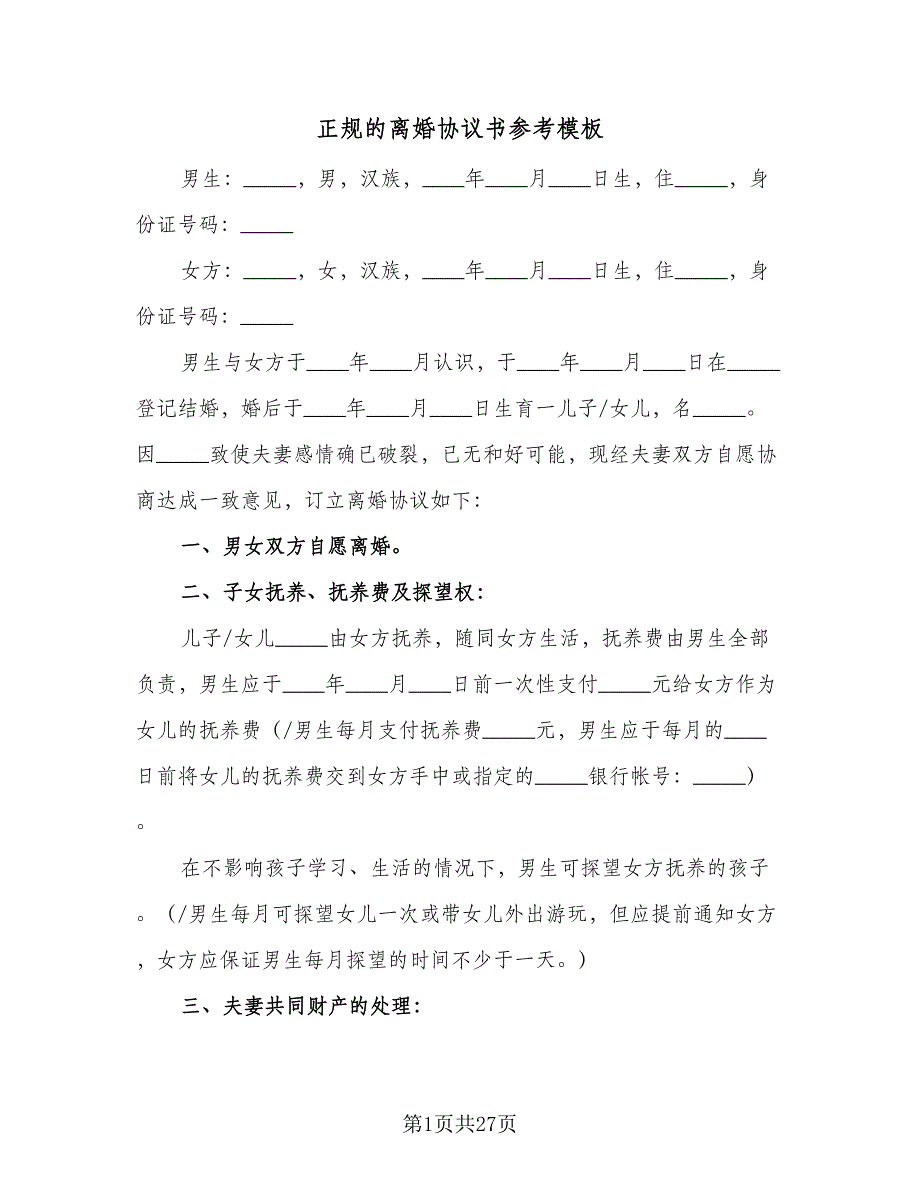 正规的离婚协议书参考模板
男生：_____，男，汉族，____年____月____日生，住_____，身
份证号码：_____
女方：_____，女，汉族，____年____月____日生，住_____，身
份证号码：_____
男生与女方于____年____月认识，于____年____月____日在_____
登记结婚，婚后于____年____月____日生育一儿子/女儿，名_____。
因_____致使夫妻感情确已破裂，已无和好可能，现经夫妻双方自愿协
商达成一致意见，订立离婚协议如下：
一、男女双方自愿离婚。
二、子女抚养、抚养费及探望权：
儿子/女儿_____由女方抚养，随同女方生活，抚养费由男生全部
负责，男生应于____年____月____日前一次性支付_____元给女方作为
女儿的抚养费（/男生每月支付抚养费_____元，男生应于每月的____
日前将女儿的抚养费交到女方手中或指定的_____银行帐号：_____）
。
在不影响孩子学习、生活的情况下，男生可探望女方抚养的孩子
。（/男生每月可探望女儿一次或带女儿外出游玩，但应提前通知女方
，女方应保证男生每月探望的时间不少于一天。）
三、夫妻共同财产的处理：
第1页共27页